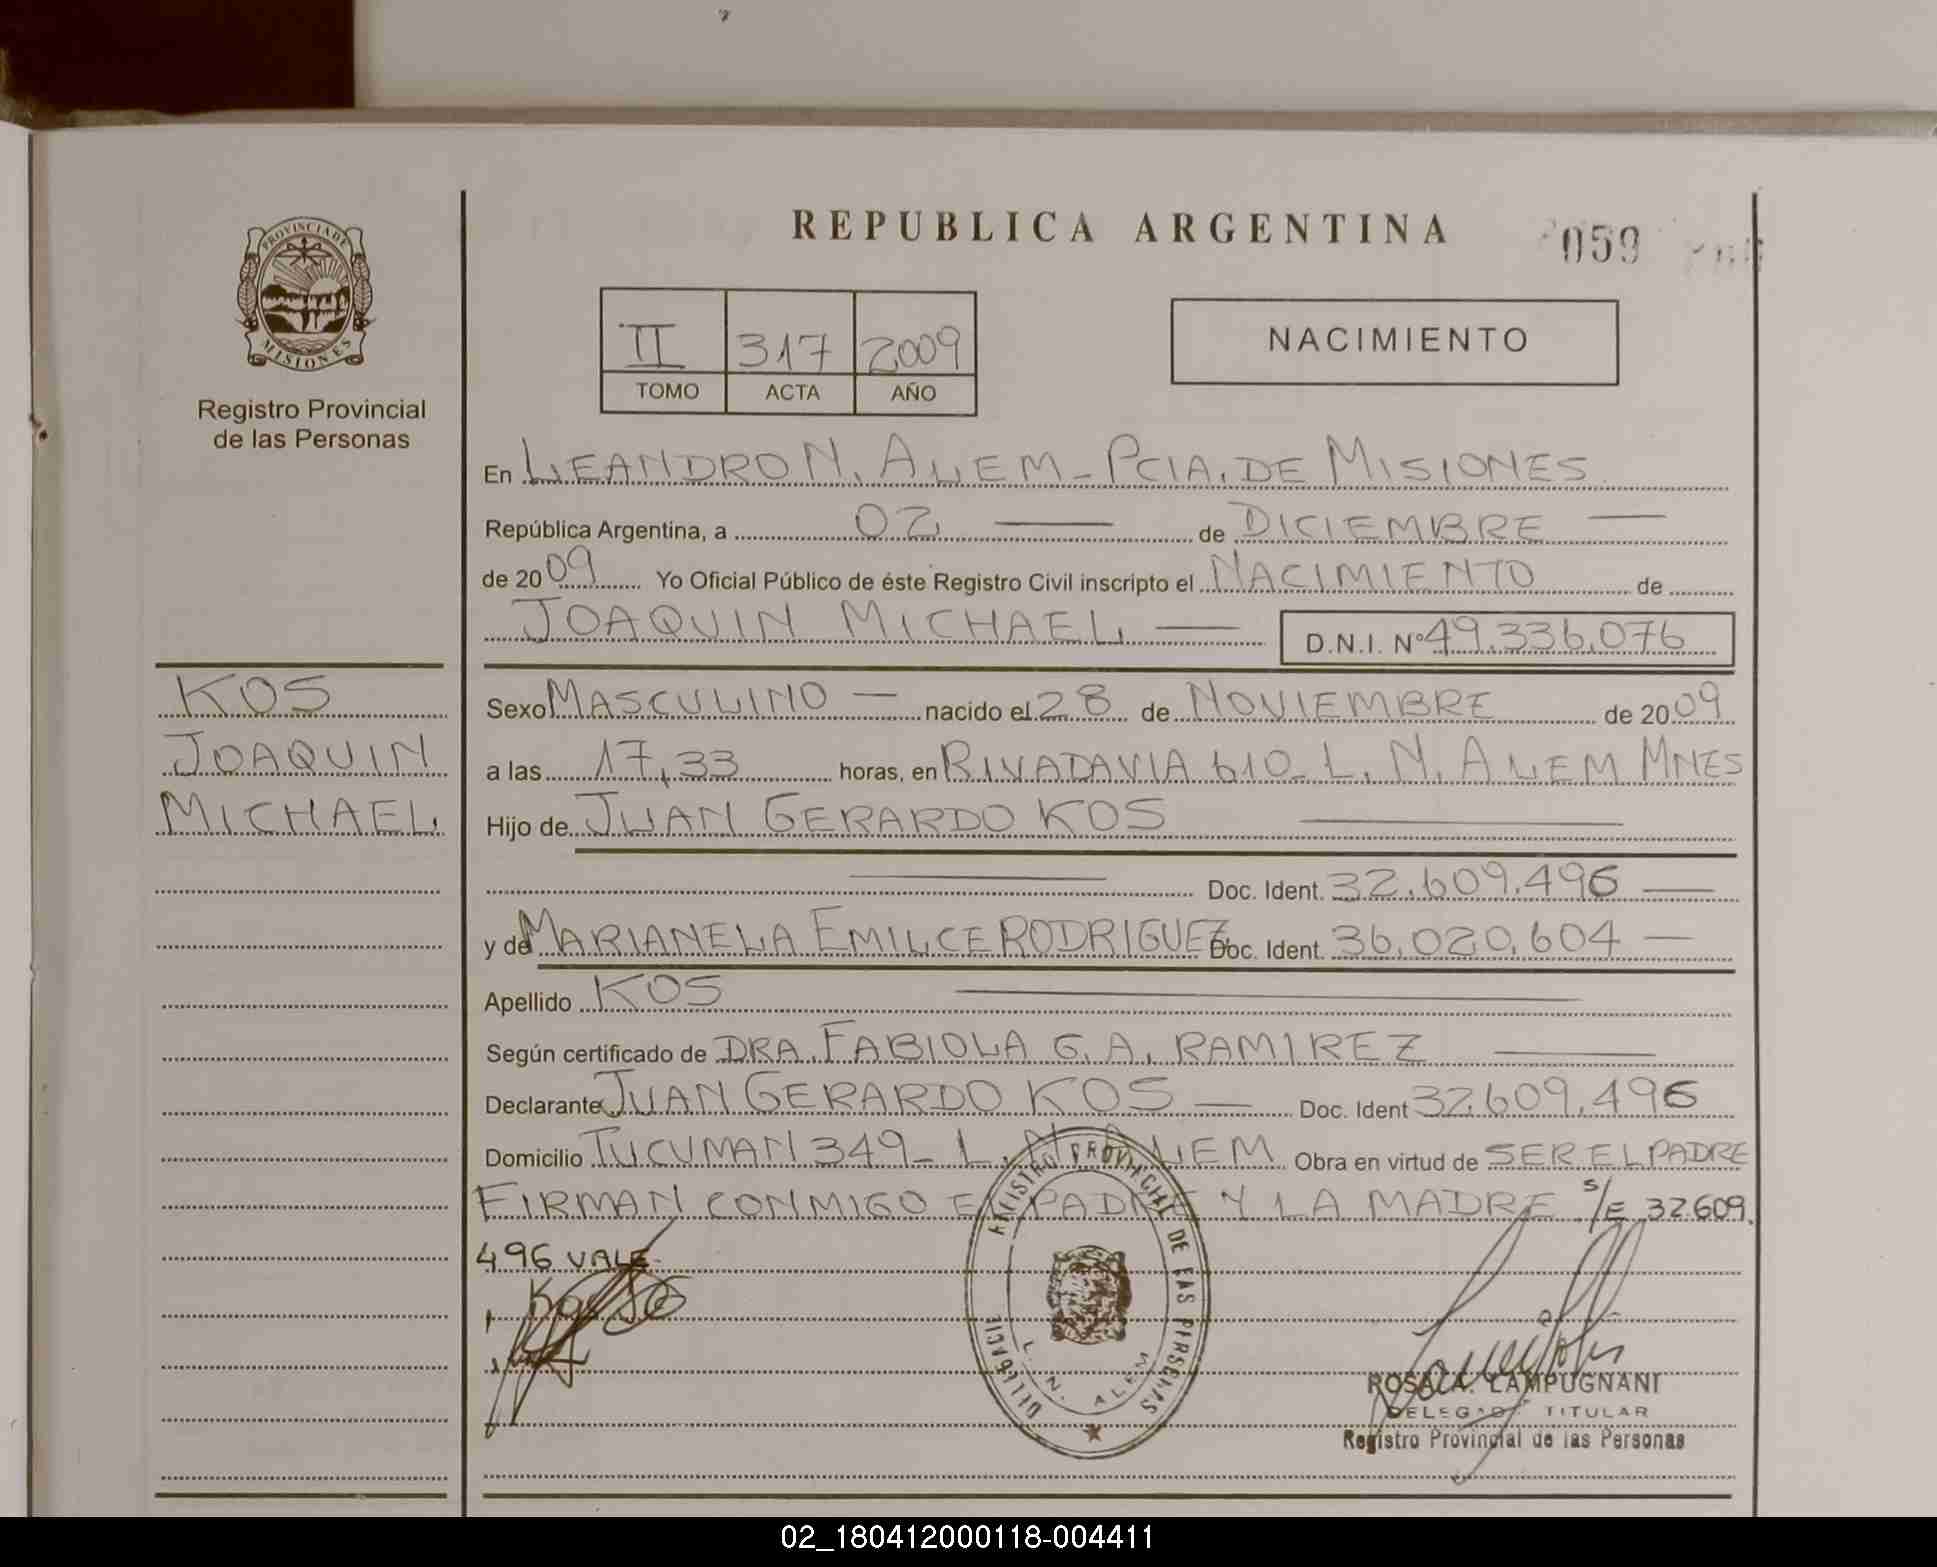 REPUBLICA ARGENTINA
059
PROVINCIA DE
MISIONES
Registro Provincial
de las Personas
II 317 2009
TOMO ACTA AÑO
NACIMIENTO
En LEANDRO N. ALEM - PCIA. DE MISIONES
República Argentina, a 02 — de DICIEMBRE —
de 2009 Yo Oficial Público de éste Registro Civil inscripto el NACIMIENTO de
JOAQUIN MICHAEL — D.N.I. Nº 49.336.076
KOS
JOAQUIN
MICHAEL
Sexo MASCULINO — nacido el 28 de NOVIEMBRE de 2009
a las 17,33 horas, en RIVADAVIA 610 - L. N. ALEM MNES
Hijo de JUAN GERARDO KOS —
— Doc. Ident. 32.609.496 —
y de MARIANELA EMILCE RODRIGUEZ Doc. Ident. 36.020.604 —
Apellido KOS —
Según certificado de DRA. FABIOLA G. A. RAMIREZ —
Declarante JUAN GERARDO KOS — Doc. Ident 32.609.496
Domicilio TUCUMAN 349 - L. N. ALEM Obra en virtud de SER EL PADRE
FIRMAN CONMIGO EL PADRE Y LA MADRE s/E 32.609.
496 VALE
REGISTRO PROVINCIAL DE LAS PERSONAS
DELEGACION
L. N. ALEM
ROSA A. LAMPUGNANI
DELEGADA TITULAR
Registro Provincial de las Personas
02_180412000118-004411